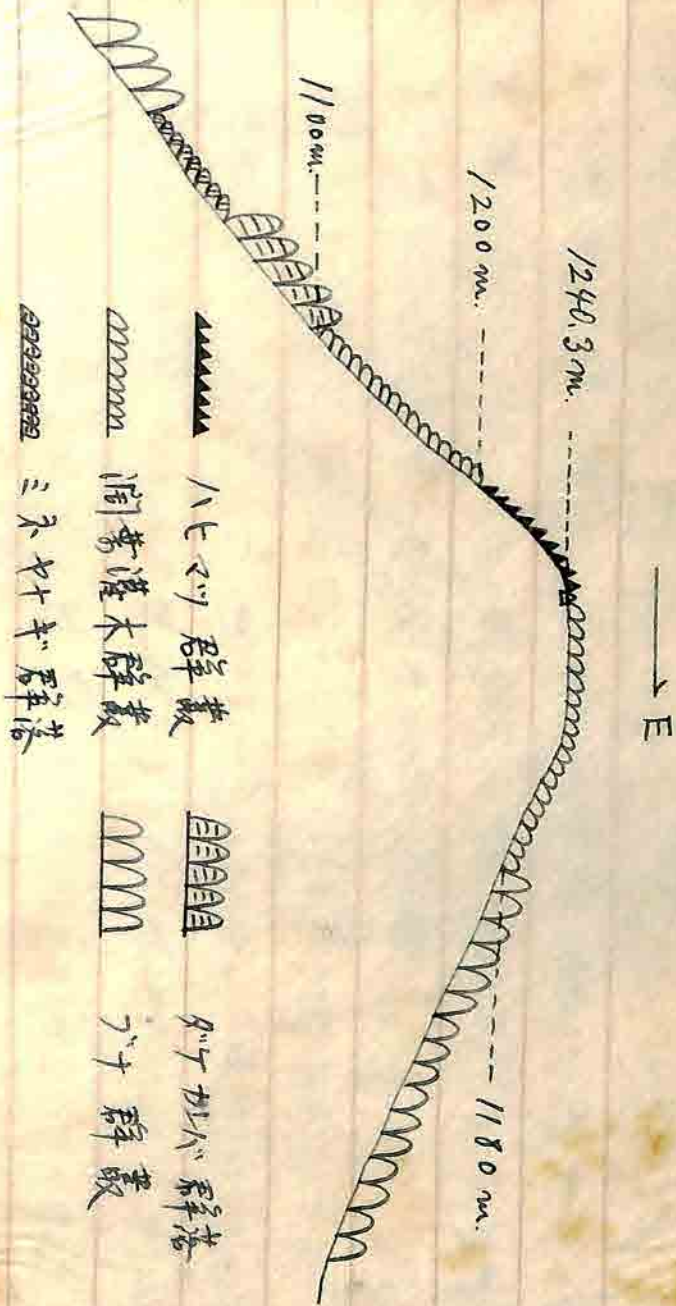 E
1240.3m.
1200m.
1100m.
1180m.
ハヒマツ群叢
濶葉灌木群叢
ミネヤナギ群落
ダケカンバ群落
ブナ群叢